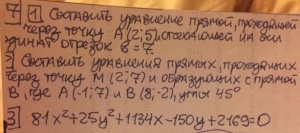 7 1 Составить уравнение прямой, проходящей
через точку А (2; 5), отсекающей на оси
динат отрезок b = 7.
2 Составить уравнения прямых, проходящих
через точку M (2; 7) и образующих с прямой
B, где A (-1; 7) и B (8; -2), углы 45°
3 81x²+25y²+1134x-150y+2169=0